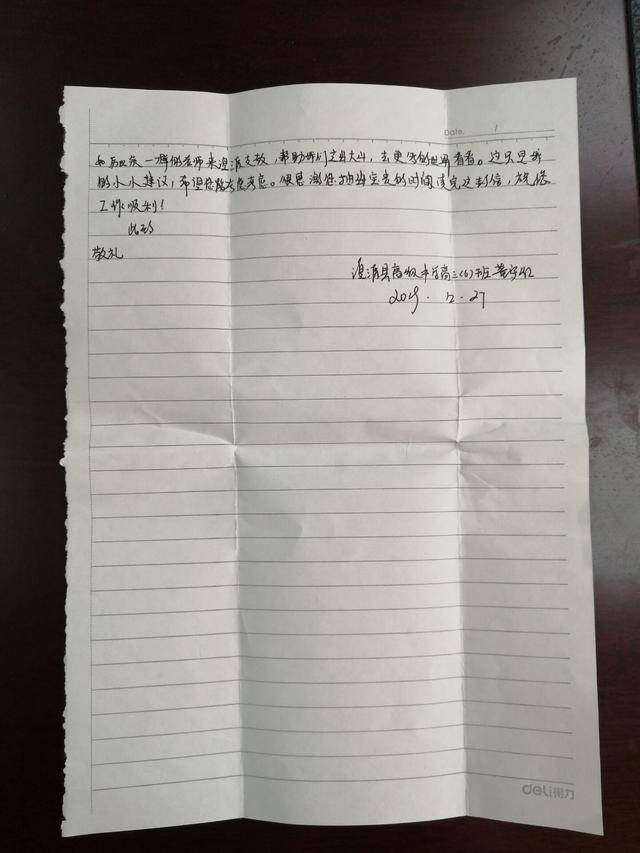 Date. /
一样的老师来澄清支教，帮助我们走出大山，去更大的世界看看。这只是我
的小小建议，希望您能考虑考虑。很感谢您抽出宝贵的时间读完这封信，祝您
工作顺利！
此致
敬礼
县高级中学高三(6)班
2019. 12. 27
deli得力